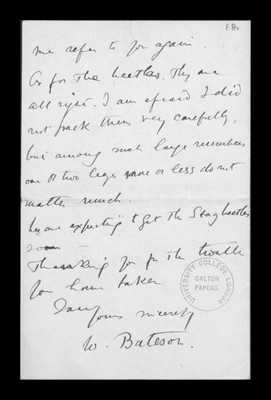 1.8v
me refer to you again.
As for the beetles. They are
all right. I am afraid I did
not pack them very carefully,
but among such large numbers
one or two legs more or less do not
matter much.
are expecting to get the Stag beetles
soon
Thanking you for the trouble
you have taken
I am
yours sincerely
W. Bateson.
UNIVERSITY COLLEGE LONDON
GALTON
PAPERS